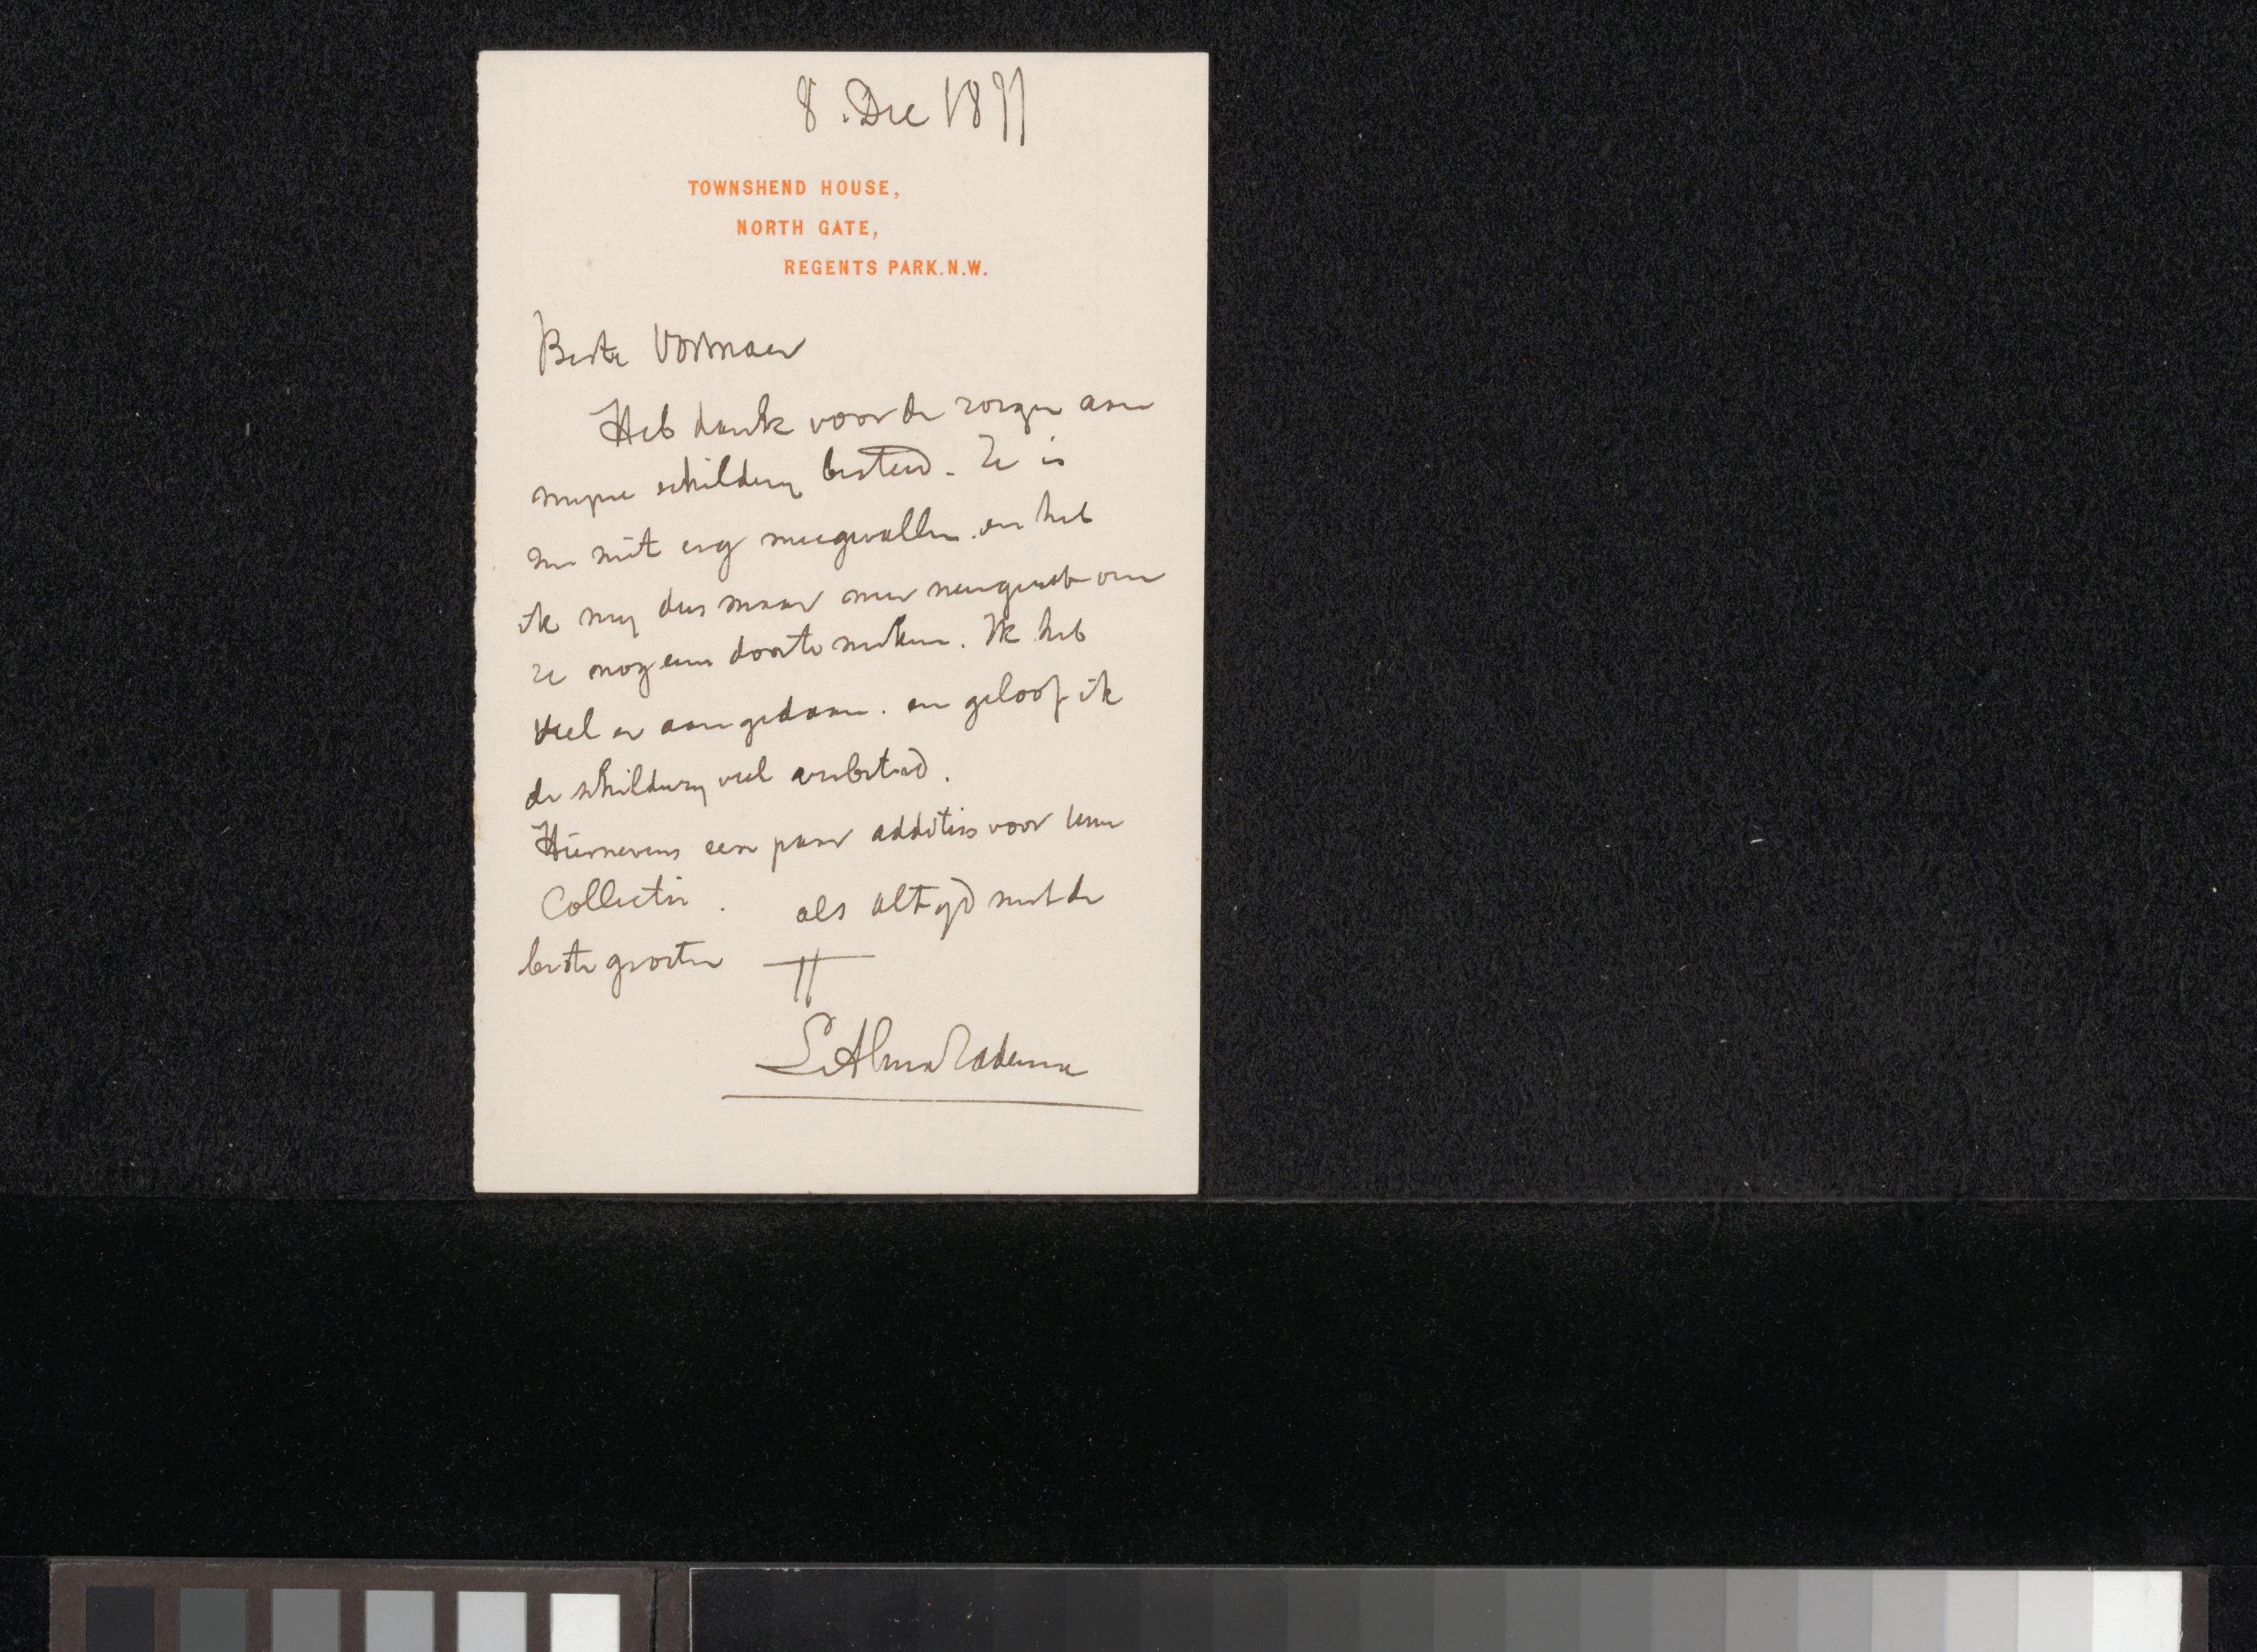 8. Dec 1877
TOWNSHEND HOUSE,
NORTH GATE,
REGENTS PARK. N.W.
Beste Vosmaer
Heb dank voor de zorgen aan
myne schildery besteed. Ze is
me niet erg meegevallen en heb
ik my dus maar neergezet om
ze nog eens door te maken. Ik heb
veel er aan gedaan. en geloof ik
de schildery veel verbeterd.
Hiernevens een paar addities voor uwe
Collectie. als altyd met de
beste groeten
L Alma Tadema